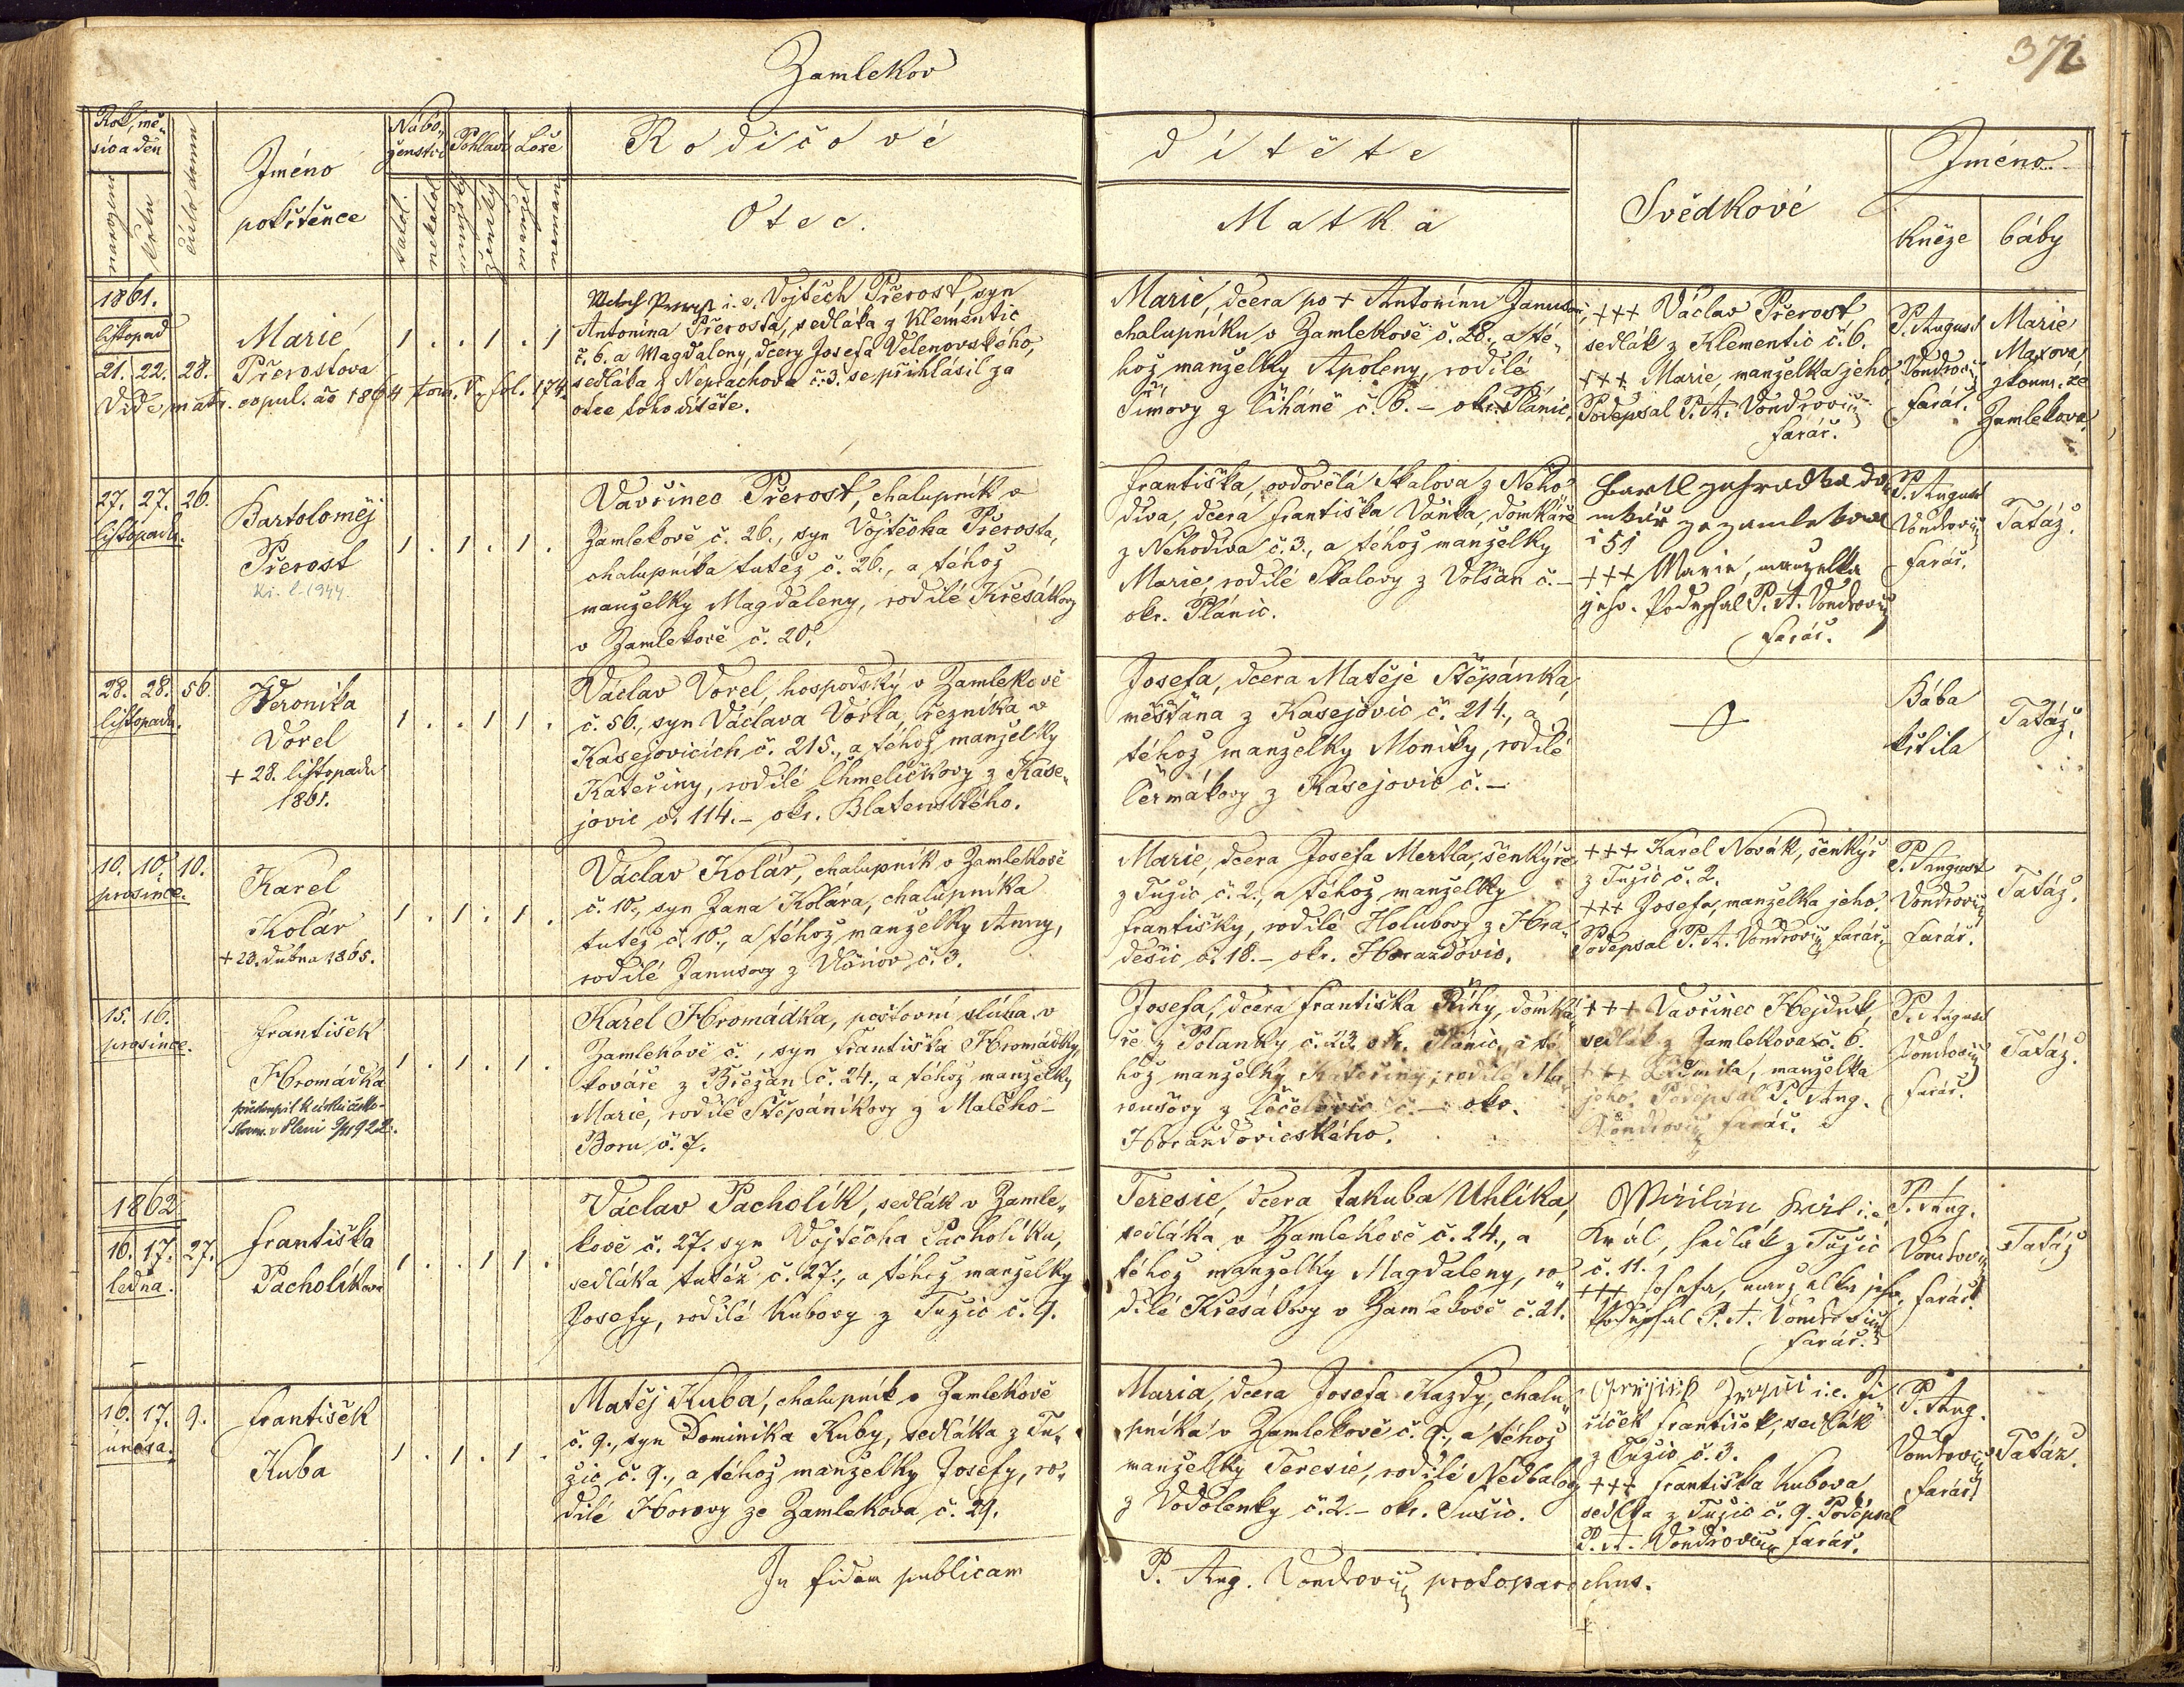 Zamlekov
372
Rok, mě-
síc a den
narození
křtu
číslo domu
Jméno
pokřtěnce
Nábo-
ženství
katol.
nekatol.
Pohlaví
mužský
ženský
Lože
manžel.
nemanž.
Rodičové
Otec.
dítěte
Matka
Svědkové
Jméno
kněze
báby
1861.
listopad
21. 22. 28.
Marie
Přerostova
Vide matr. copul. ão 1864 tom. V. fol. 174.
1 . . 1 . 1
i. e. Vojtěch Přerost, syn
Antonína Přerosta, sedláka z Klementic
č. 6. a Magdaleny, dcery Josefa Velenovského,
sedláka z Neprachova č. 3. se přihlásil za
otce toho dítěte.
Marie, dcera po + Antonínu Janusovi,
chalupníku v Zamlekově č. 28., a té-
hož manželky Apoleny, rodilé
Šimovy z Číháně č. 6. – okr. Plánic.
+++ Václav Přerost
sedlák z Klementic č. 6.
+++ Marie, manželka jeho.
Podepsal P. A. Vondrovic
farář.
P. August
Vondrovic
farář.
Marie
Maxova
zkouš. ze
Zamlekova.
27. 27. 26.
listopadu.
Bartoloměj
Přerost
1 . 1 . 1 .
Vavřinec Přerost, chalupník v
Zamlekově č. 26., syn Vojtěcha Přerosta,
chalupníka tutéž č. 26., a téhož
manželky Magdaleny, rodilé Křesákovy
v Zamlekově č. 20.
Františka, ovdovělá Skalova z Neho-
díva, dcera Františka Vaňka, domkáře
z Nehodíva č. 3., a téhož manželky
Marie, rodilé Skalovy z Volšan č. –
okr. Plánic.
ze zamlekova
+++ Marie, manželka
jeho. Podepsal P. A. Vondrovic
farář.
P. August
Vondrovic
farář.
Tatáž.
28. 28. 56.
listopadu.
Veronika
Vorel
+ 28. listopadu
1861.
1 . . 1 1 .
Václav Vorel, hospodský v Zamlekově
č. 56., syn Václava Vorla, řezníka v
Kasejovicích č. 215., a téhož manželky
Kateřiny, rodilé Chmelíčkovy z Kase-
jovic č. 114. – okr. Blatenského.
Josefa, dcera Matěje Štěpánka,
měšťana z Kasejovic č. 214., a
téhož manželky Moniky, rodilé
Čermákovy z Kasejovic č. –
Bába
křtila
Tatáž.
10. 10. 10.
prosince.
Karel
Kolár
+ 23. dubna 1865.
1 . 1 . 1 .
Václav Kolár, chalupník v Zamlekově
č. 10., syn Jana Kolára, chalupníka
tutéž č. 10., a téhož manželky Anny,
rodilé Janusovy z Vlčnov č. 3.
Marie, dcera Josefa Mertla, šenkýře
z Tužic č. 2., a téhož manželky
Františky, rodilé Holubovy z Hra-
dešic č. 18. – okr. Horažďovic.
+++ Karel Novák, šenkýř
z Tužic č. 2.
+++ Josefa, manželka jeho.
Podepsal P. A. Vondrovic farář.
P. August
Vondrovic
farář.
Tatáž.
15. 16.
prosince.
František
Hromádka
1 . 1 . 1 .
Karel Hromádka, poštovní sluha v
Zamlekově č. , syn Františka Hromádky,
kováře z Břežan č. 24., a téhož manželky
Marie, rodilé Štěpánkovy z Malého
Boru č. 7.
Josefa, dcera Františka Říhy, domká-
ře z Polanky č. 23. okr. Plánic, a té-
hož manželky Kateřiny, rodilé Ma-
roušovy z č. – okr.
Horažďovického.
+++ Vavřinec Hejduk,
sedlák z Zamlekova č. 6.
+++ Ludmila, manželka
jeho. Podepsal P. Aug.
Vondrovic farář.
P. August
Vondrovic
farář.
Tatáž.
1862
16. 17. 27.
ledna.
Františka
Pacholíkova
1 . . 1 1 .
Václav Pacholík, sedlák v Zamle-
kově č. 27. syn Vojtěcha Pacholíka,
sedláka tutéž č. 27., a téhož manželky
Josefy, rodilé Kubovy z Tužic č. 9.
Teresie, dcera Jakuba Uhlíka,
sedláka v Zamlekově č. 24., a
téhož manželky Magdaleny, ro-
dilé Křesákovy v Zamlekově č. 21.
i. e.
Král, sedlák z Tužic
č. 11.
+++ Josefa, manželka jeho.
Podepsal P. A. Vondrovic
farář.
P. Aug.
Vondrovic
farář.
Tatáž
16. 17. 9.
února.
František
Kuba
1 . 1 . 1 .
Matěj Kuba, chalupník v Zamlekově
č. 9., syn Dominika Kuby, sedláka z Tu-
žic č. 9., a téhož manželky Josefy, ro-
dilé Horovy ze Zamlekova č. 29.
Maria, dcera Josefa Kazdy, chalu-
pníka v Zamlekově č. 9., a téhož
manželky Teresie, rodilé Nedbalovy
z Vodolenky č. 2. – okr. Sušic.
i. e. Ji-
říček František, sedlák
z Tužic č. 3.
+++ Františka Kubova,
sedlka z Tužic č. 9. Podepsal
P. A. Vondrovic farář.
P. Aug.
Vondrovic
farář
Tatáž.
In fidem publicam
P. Aug. Vondrovic protoparochus.